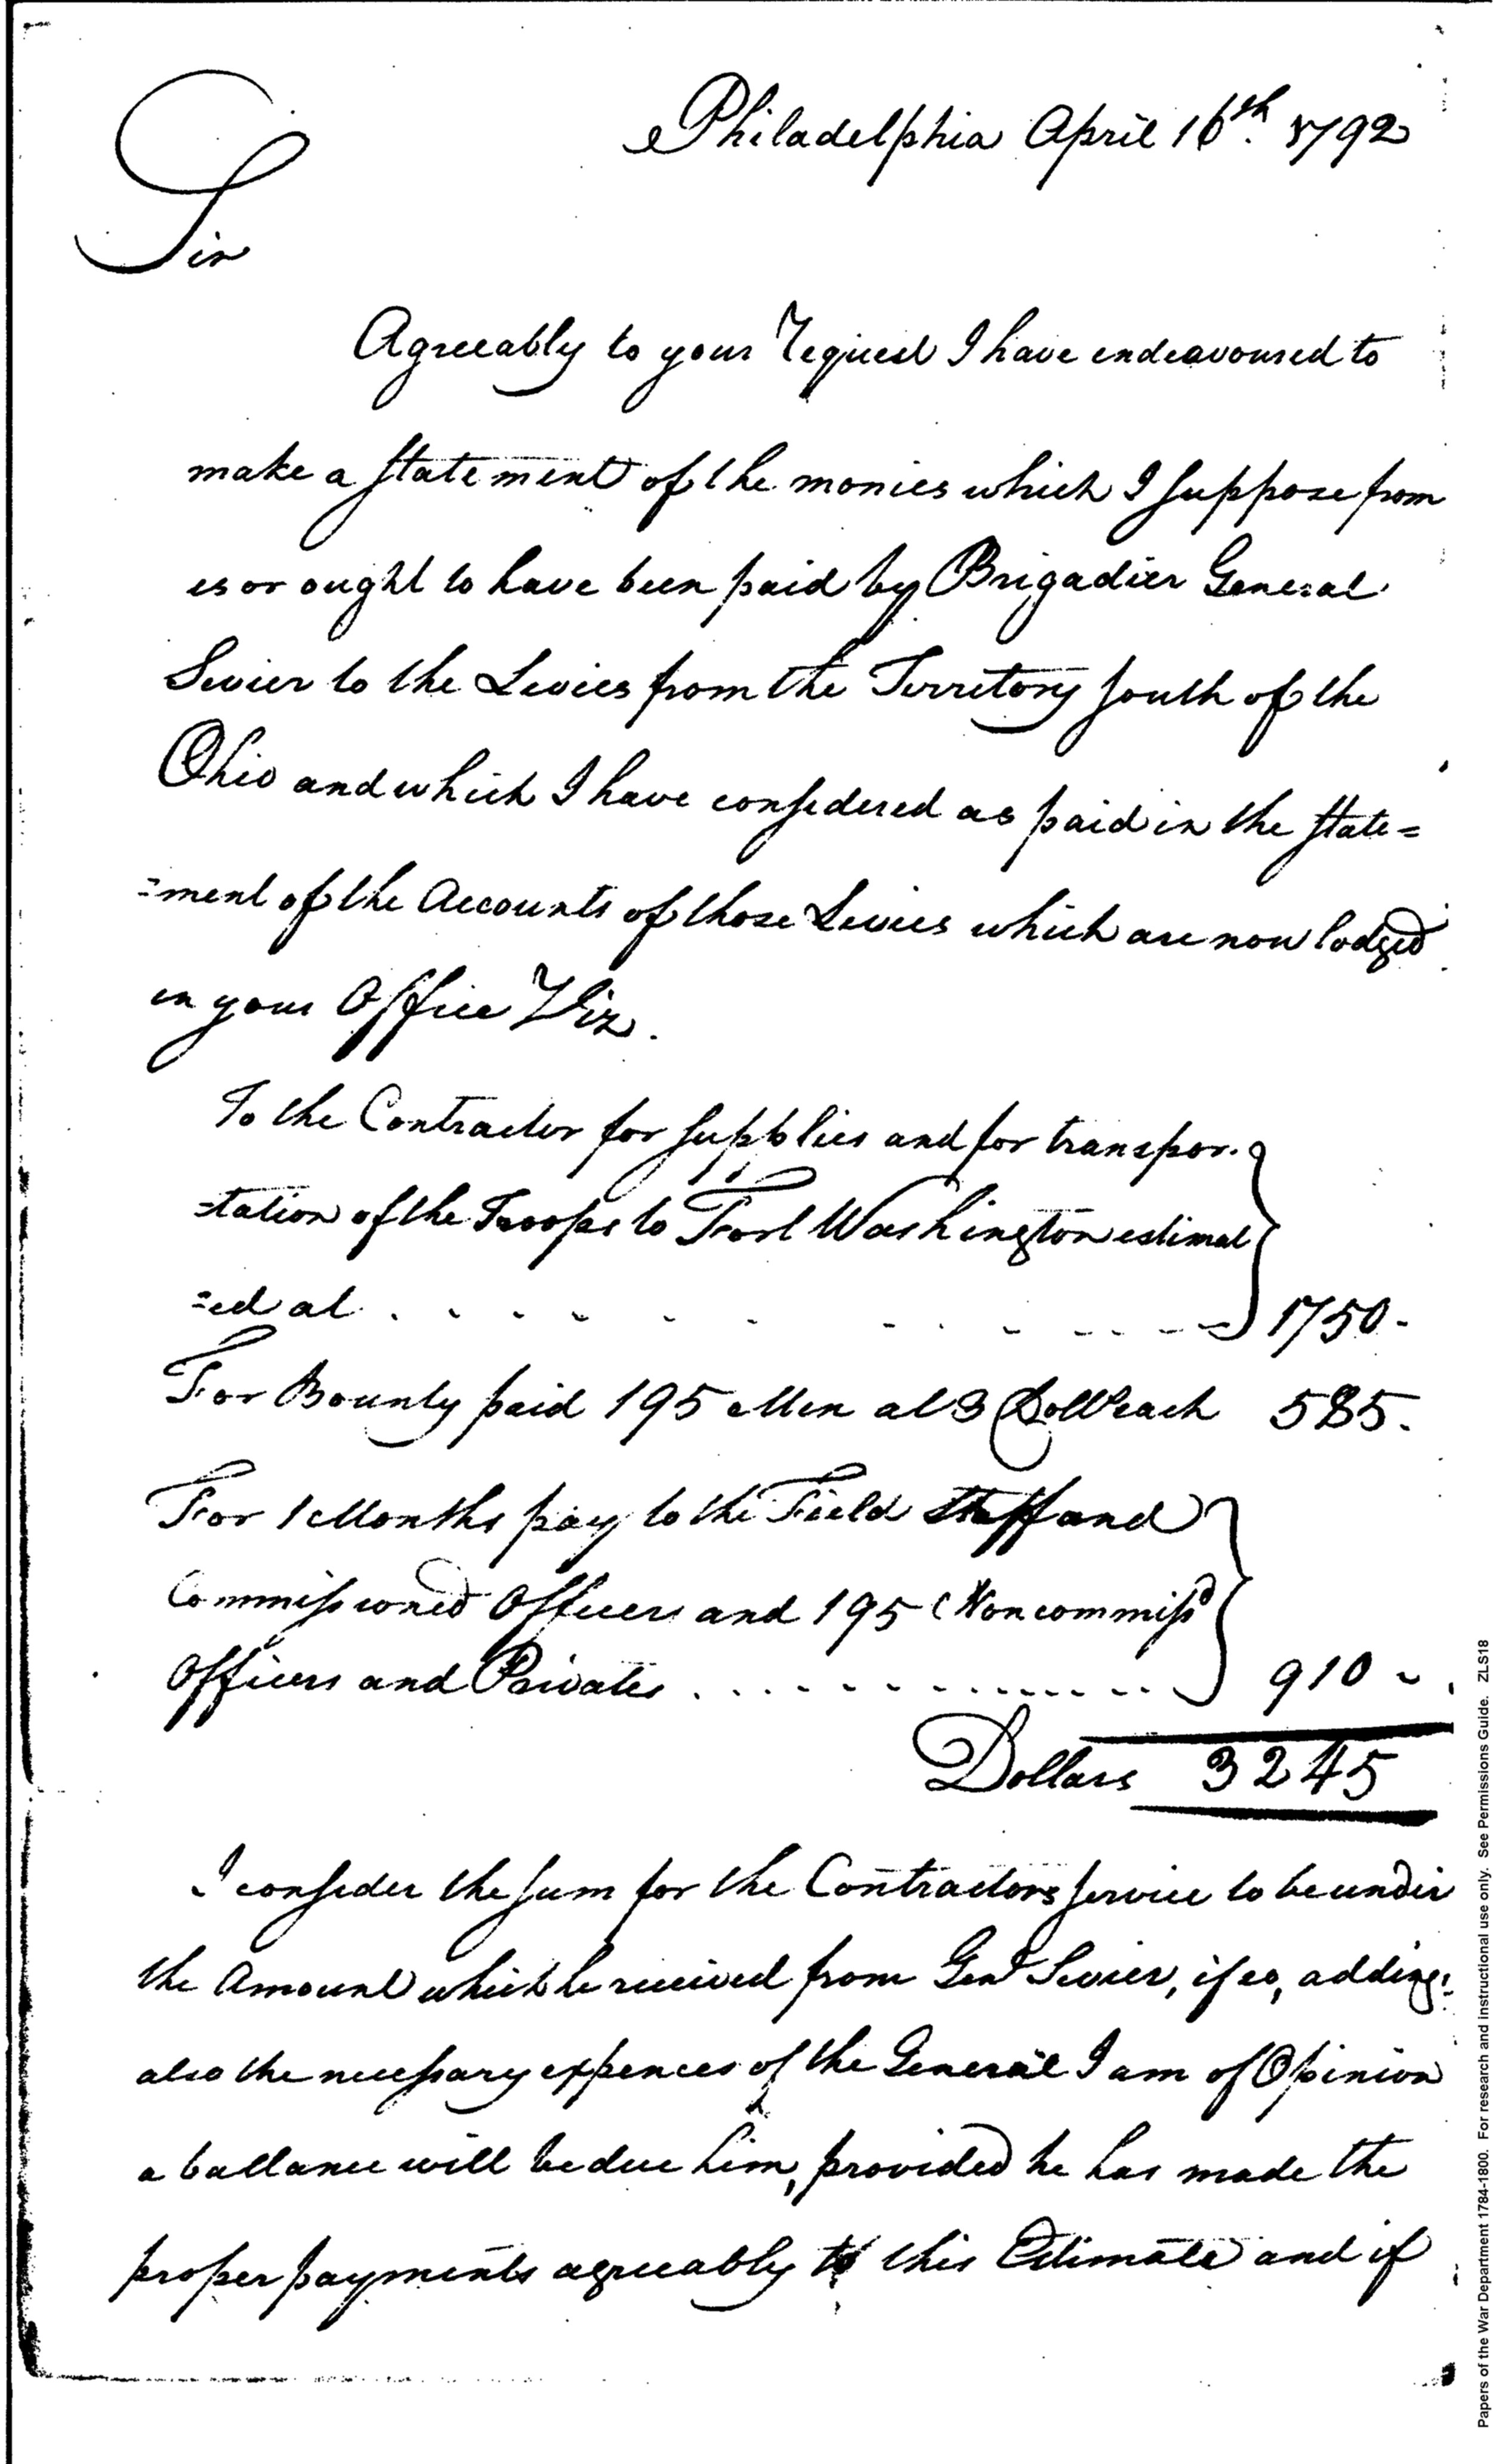 Philadelphia April 16th. 1792
Sir
Agreeably to your request I have endeavoured to
make a statement of the monies which I suppose from
es or ought to have been paid by Brigadier General
Sevier to the Levies from the Territory South of the
Ohio and which I have considered as paid in the state=
=ment of the Accounts of those Levies which are now lodged
in your Office Viz.
To the Contractor for supplies and for transpor-
=tation of the Troops to Fort Washington estimat
=ed at . . . . . . . . - - - - 1750.
For Bounty paid 195 Men at 3 Dolls each 585.
For 1 Months pay to the Field Staff and
Commissioned Officers and 195 Noncommissd
Officers and Privates . . . . . . . . . . . . . . 910 -
Dollars 3245
I consider the sum for the Contractors service to be under
the Amount which he received from Genl Sevier, if so, adding
also the necessary expences of the General I am of Opinion
a ballance will be due him, provided he has made the
proper payments agreeably to this Estimate and if
Papers of the War Department 1784-1800. For research and instructional use only. See Permissions Guide. ZLS18